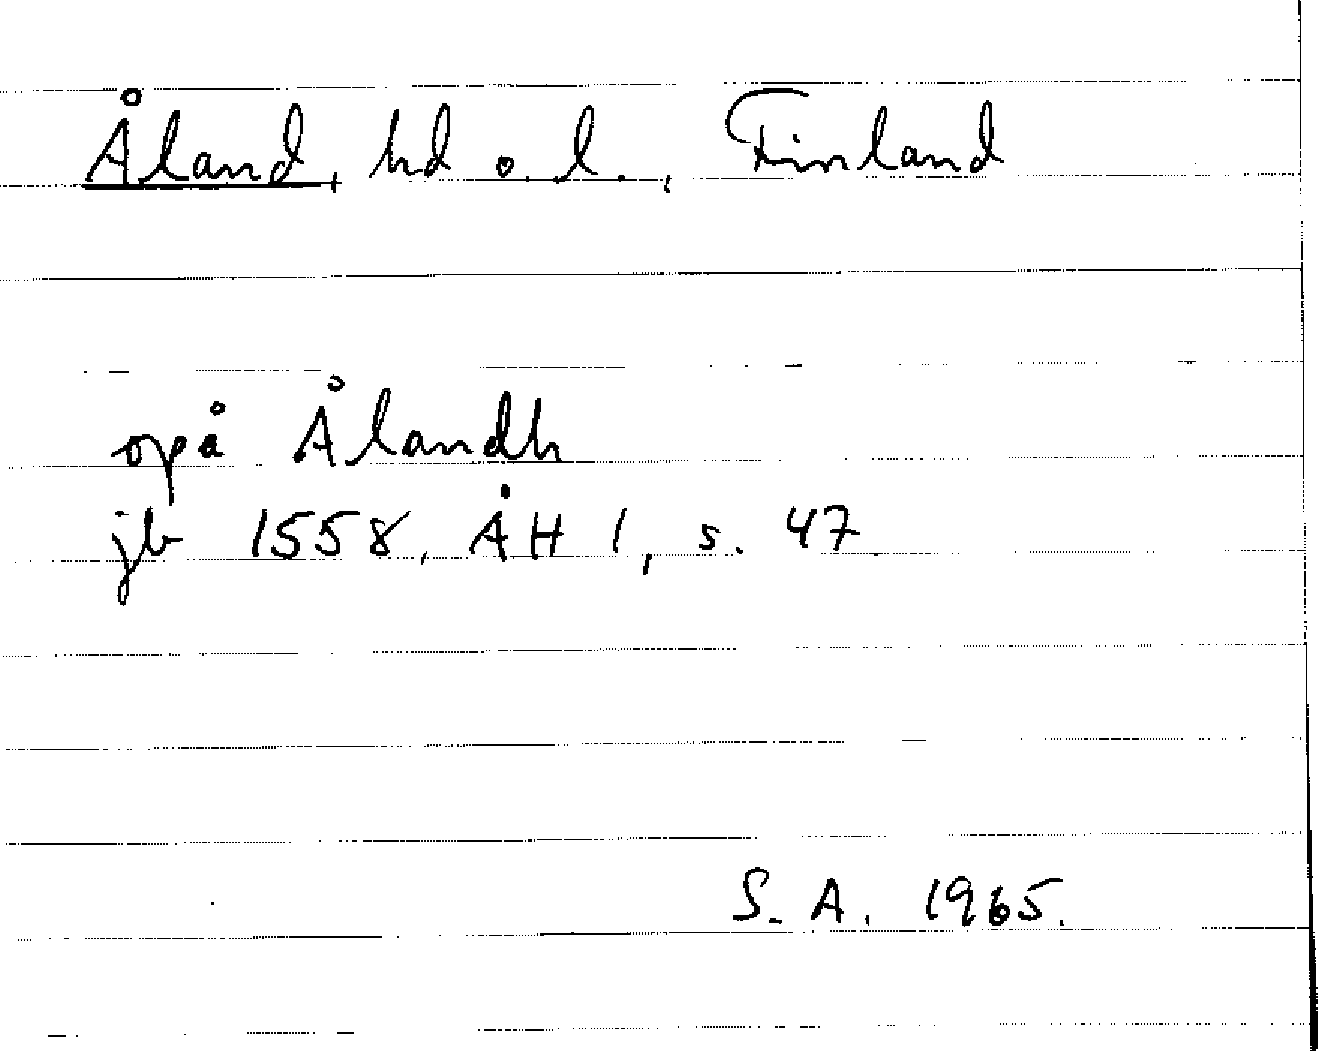 Åland, hd o. l., Finland
opå Ålandh
jb 1558, ÅH 1, s. 47
S. A. 1965.